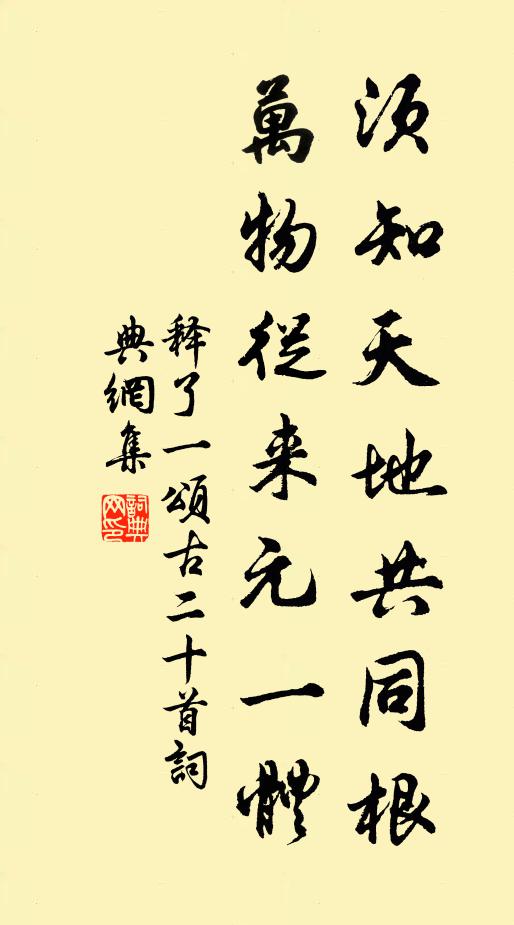 须知天地共同根
萬物從来元一體
释了一頌古二十首詞
典網集
詞典網印